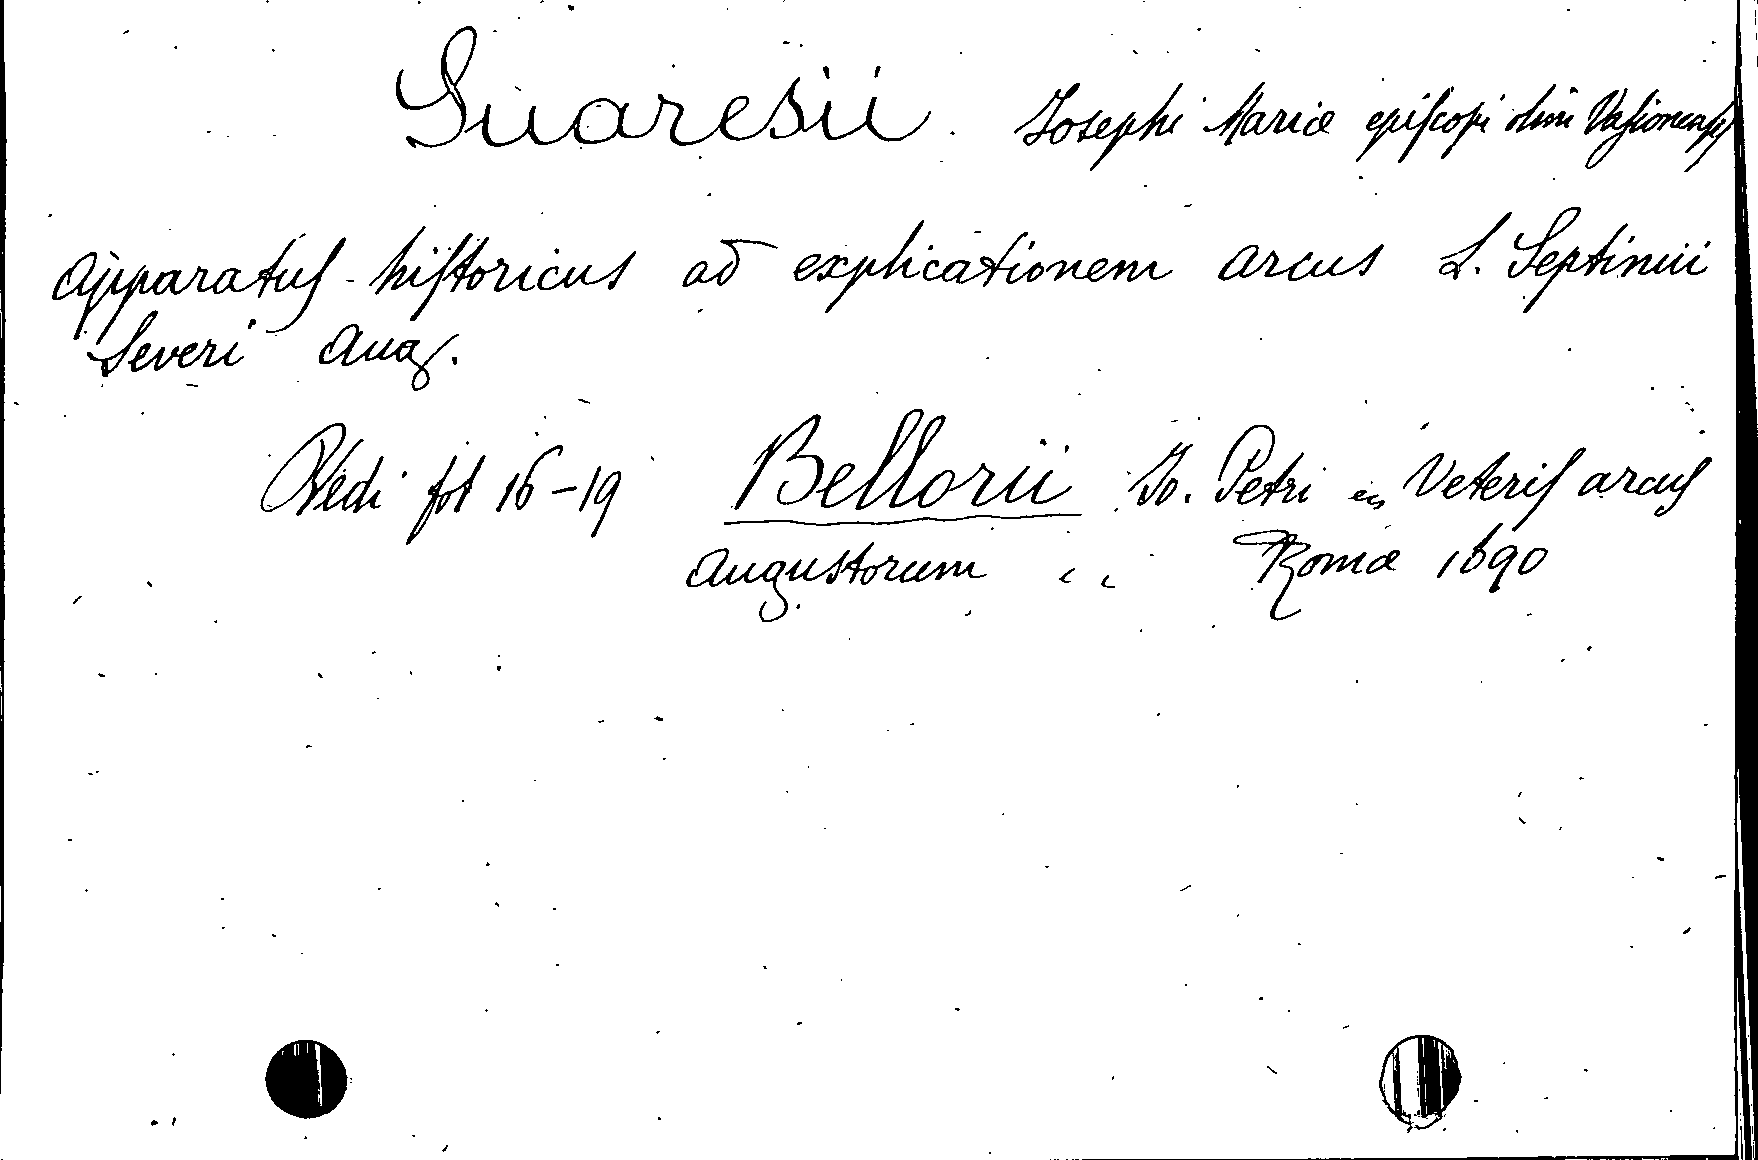 Suaresii Josephi Mariæ epiſcopi olim Vaſionenſis
apparatuſ hiſtoricus ad explicationem arcus L. Septimii
Severi Aug.
Vedi fol 16-19 Bellorii Jo. Petri Veteriſ arcuſ
Augustorum .. Romæ 1690